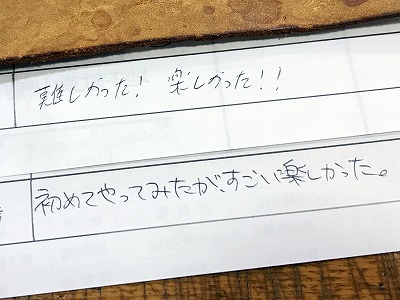 難しかった! 楽しかった!!
初めてやってみたが、すごい楽しかった。